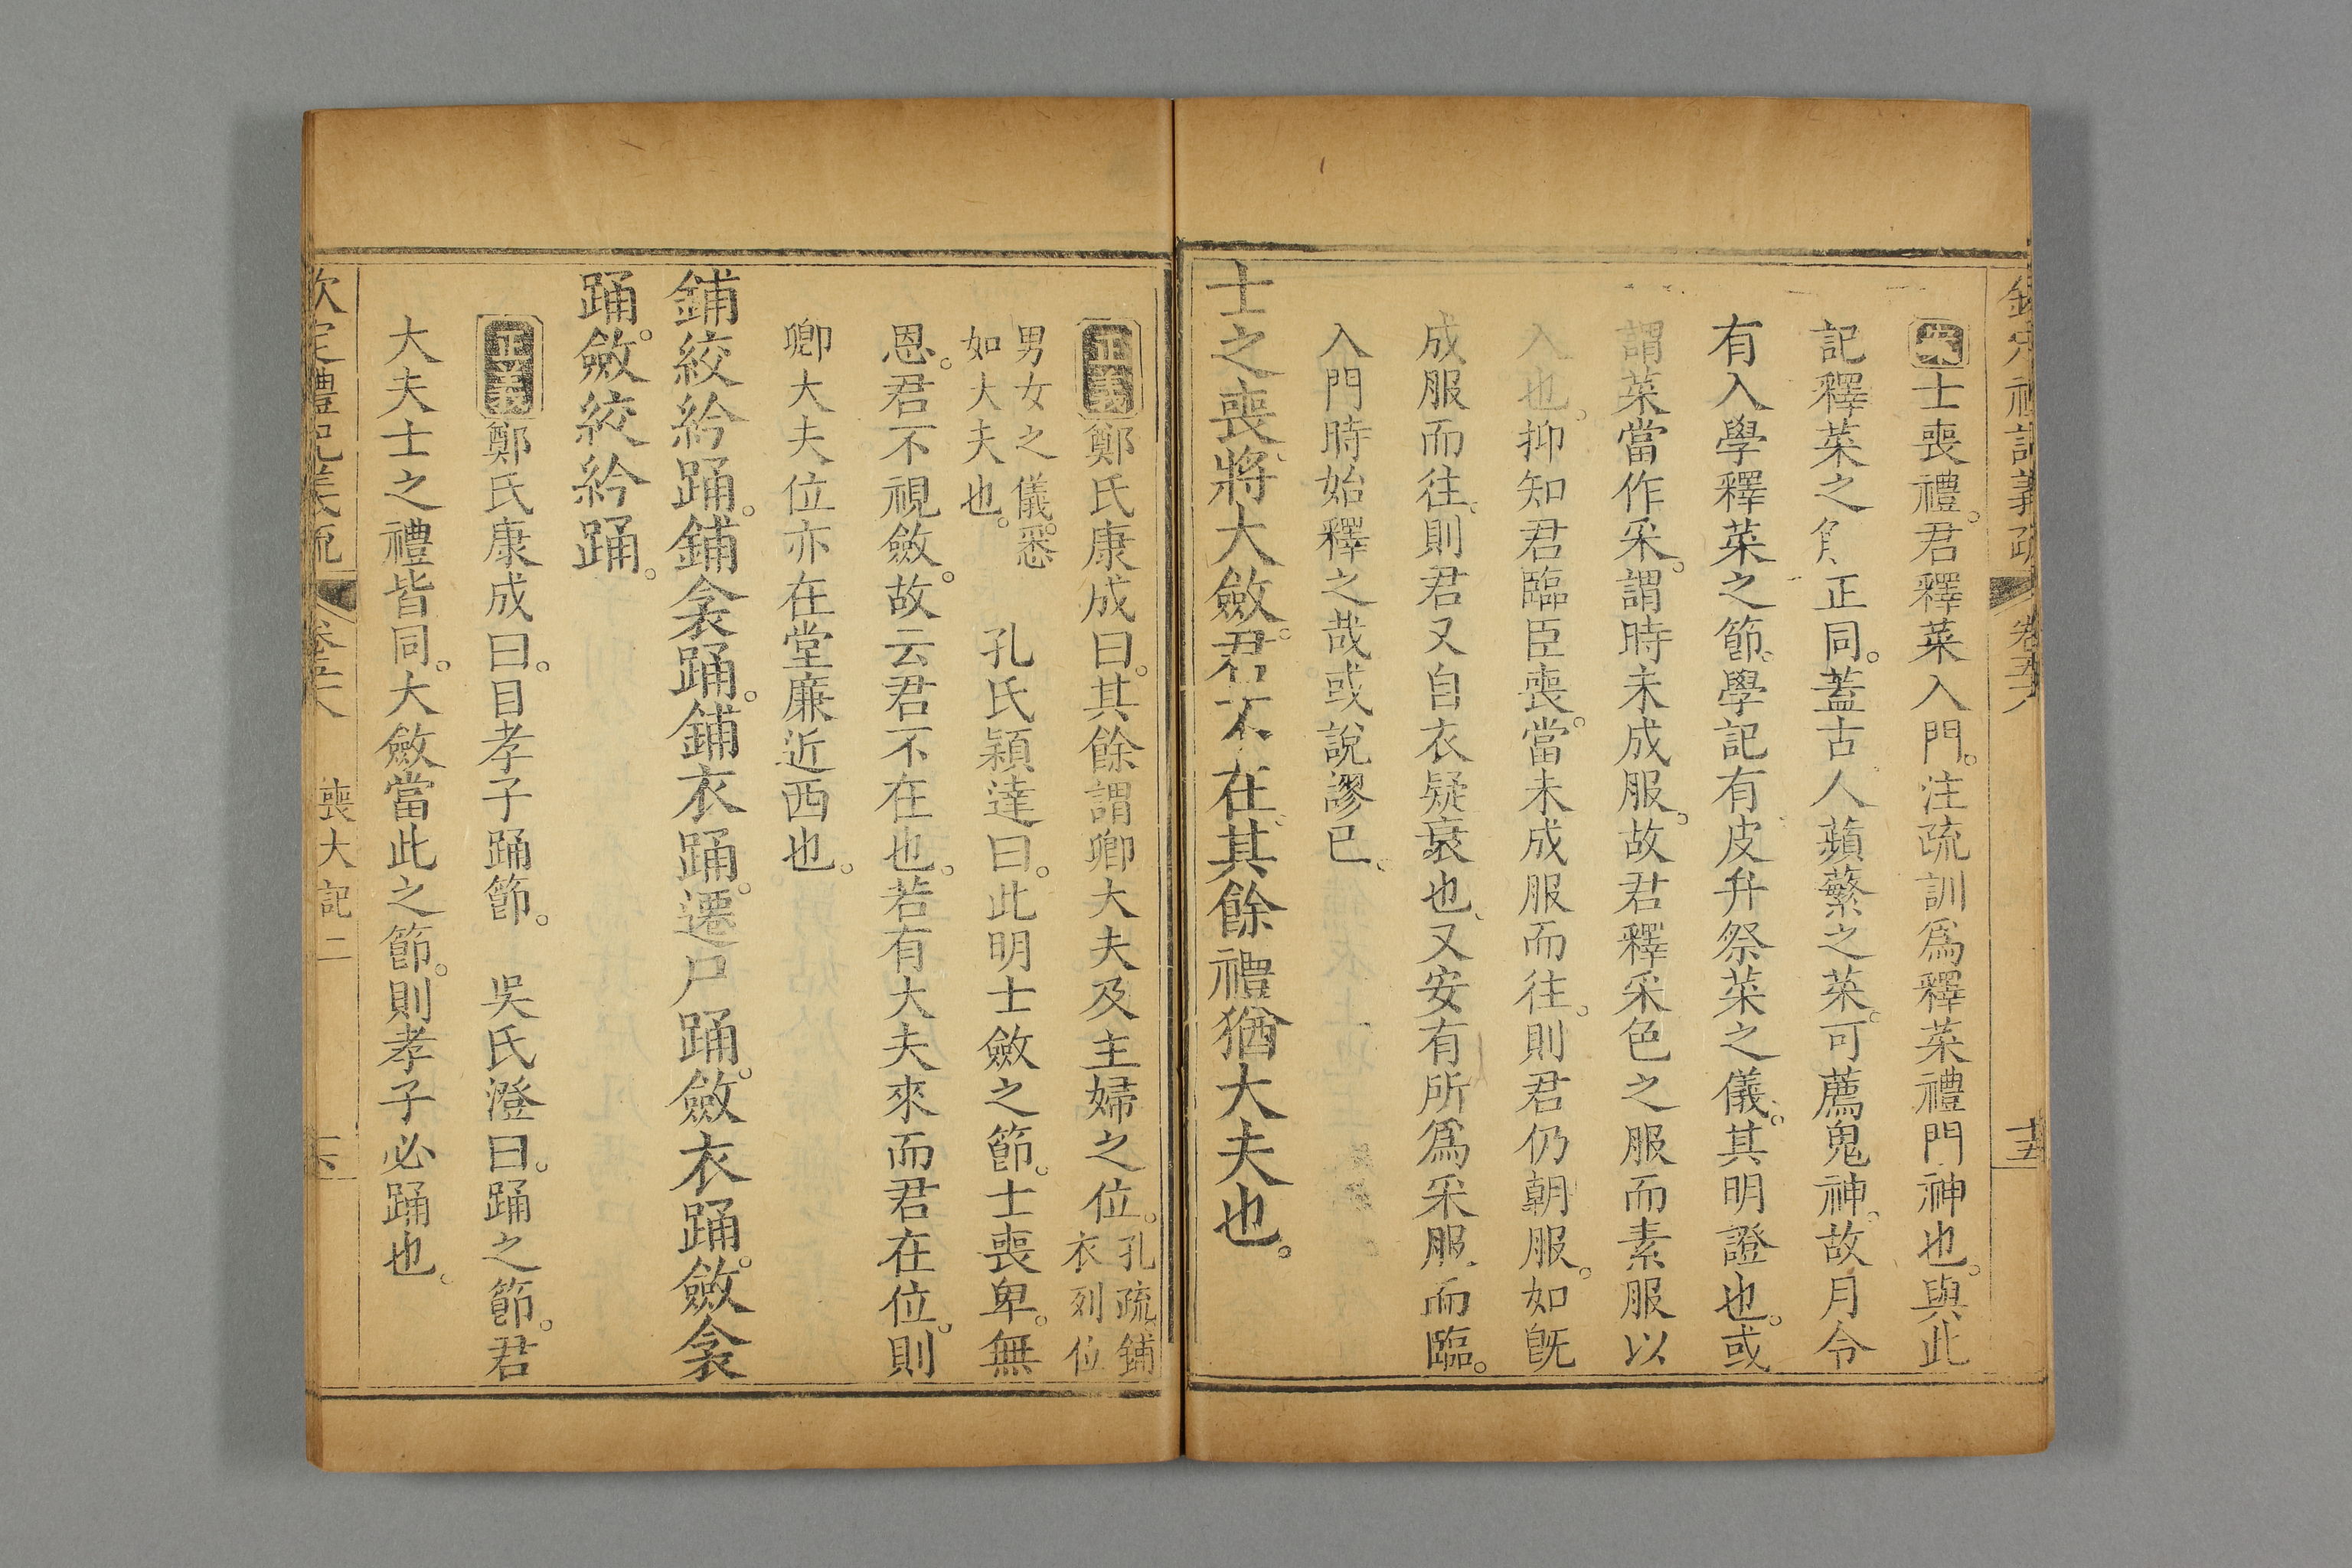 欽定禮記義疏 卷五十八 十五
案士喪禮。君釋菜入門。注疏訓爲釋菜禮門神也。與此
記釋菜之 正同。蓋古人蘋蘩之菜。可薦鬼神。故月令
有入學釋菜之節。學記有皮弁祭菜之儀。其明證也。或
謂菜當作采。謂時未成服。故君釋采色之服而素服以
入也。抑知君臨臣喪。當未成服而往。則君仍朝服。如旣
成服而往。則君又自衣疑衰也。又安有所爲采服而臨。
入門時始釋之哉。或說謬已。
士之喪。將大斂。君不在。其餘禮猶大夫也。
正義鄭氏康成曰。其餘謂卿大夫及主婦之位。孔疏。鋪衣列位
男女之儀。悉如大夫也。 孔氏穎達曰。此明士斂之節。士喪卑。無
恩。君不視斂。故云君不在也。若有大夫來而君在位。則
卿大夫位亦在堂廉近西也。
鋪絞紟踊。鋪衾踊。鋪衣踊。遷尸踊。斂衣踊。斂衾
踊。斂絞紟踊。
正義鄭氏康成曰。目孝子踊節。 吳氏澄曰。踊之節。君
大夫士之禮皆同。大斂當此之節。則孝子必踊也。
欽定禮記義疏 卷五十八 喪大記二 十六